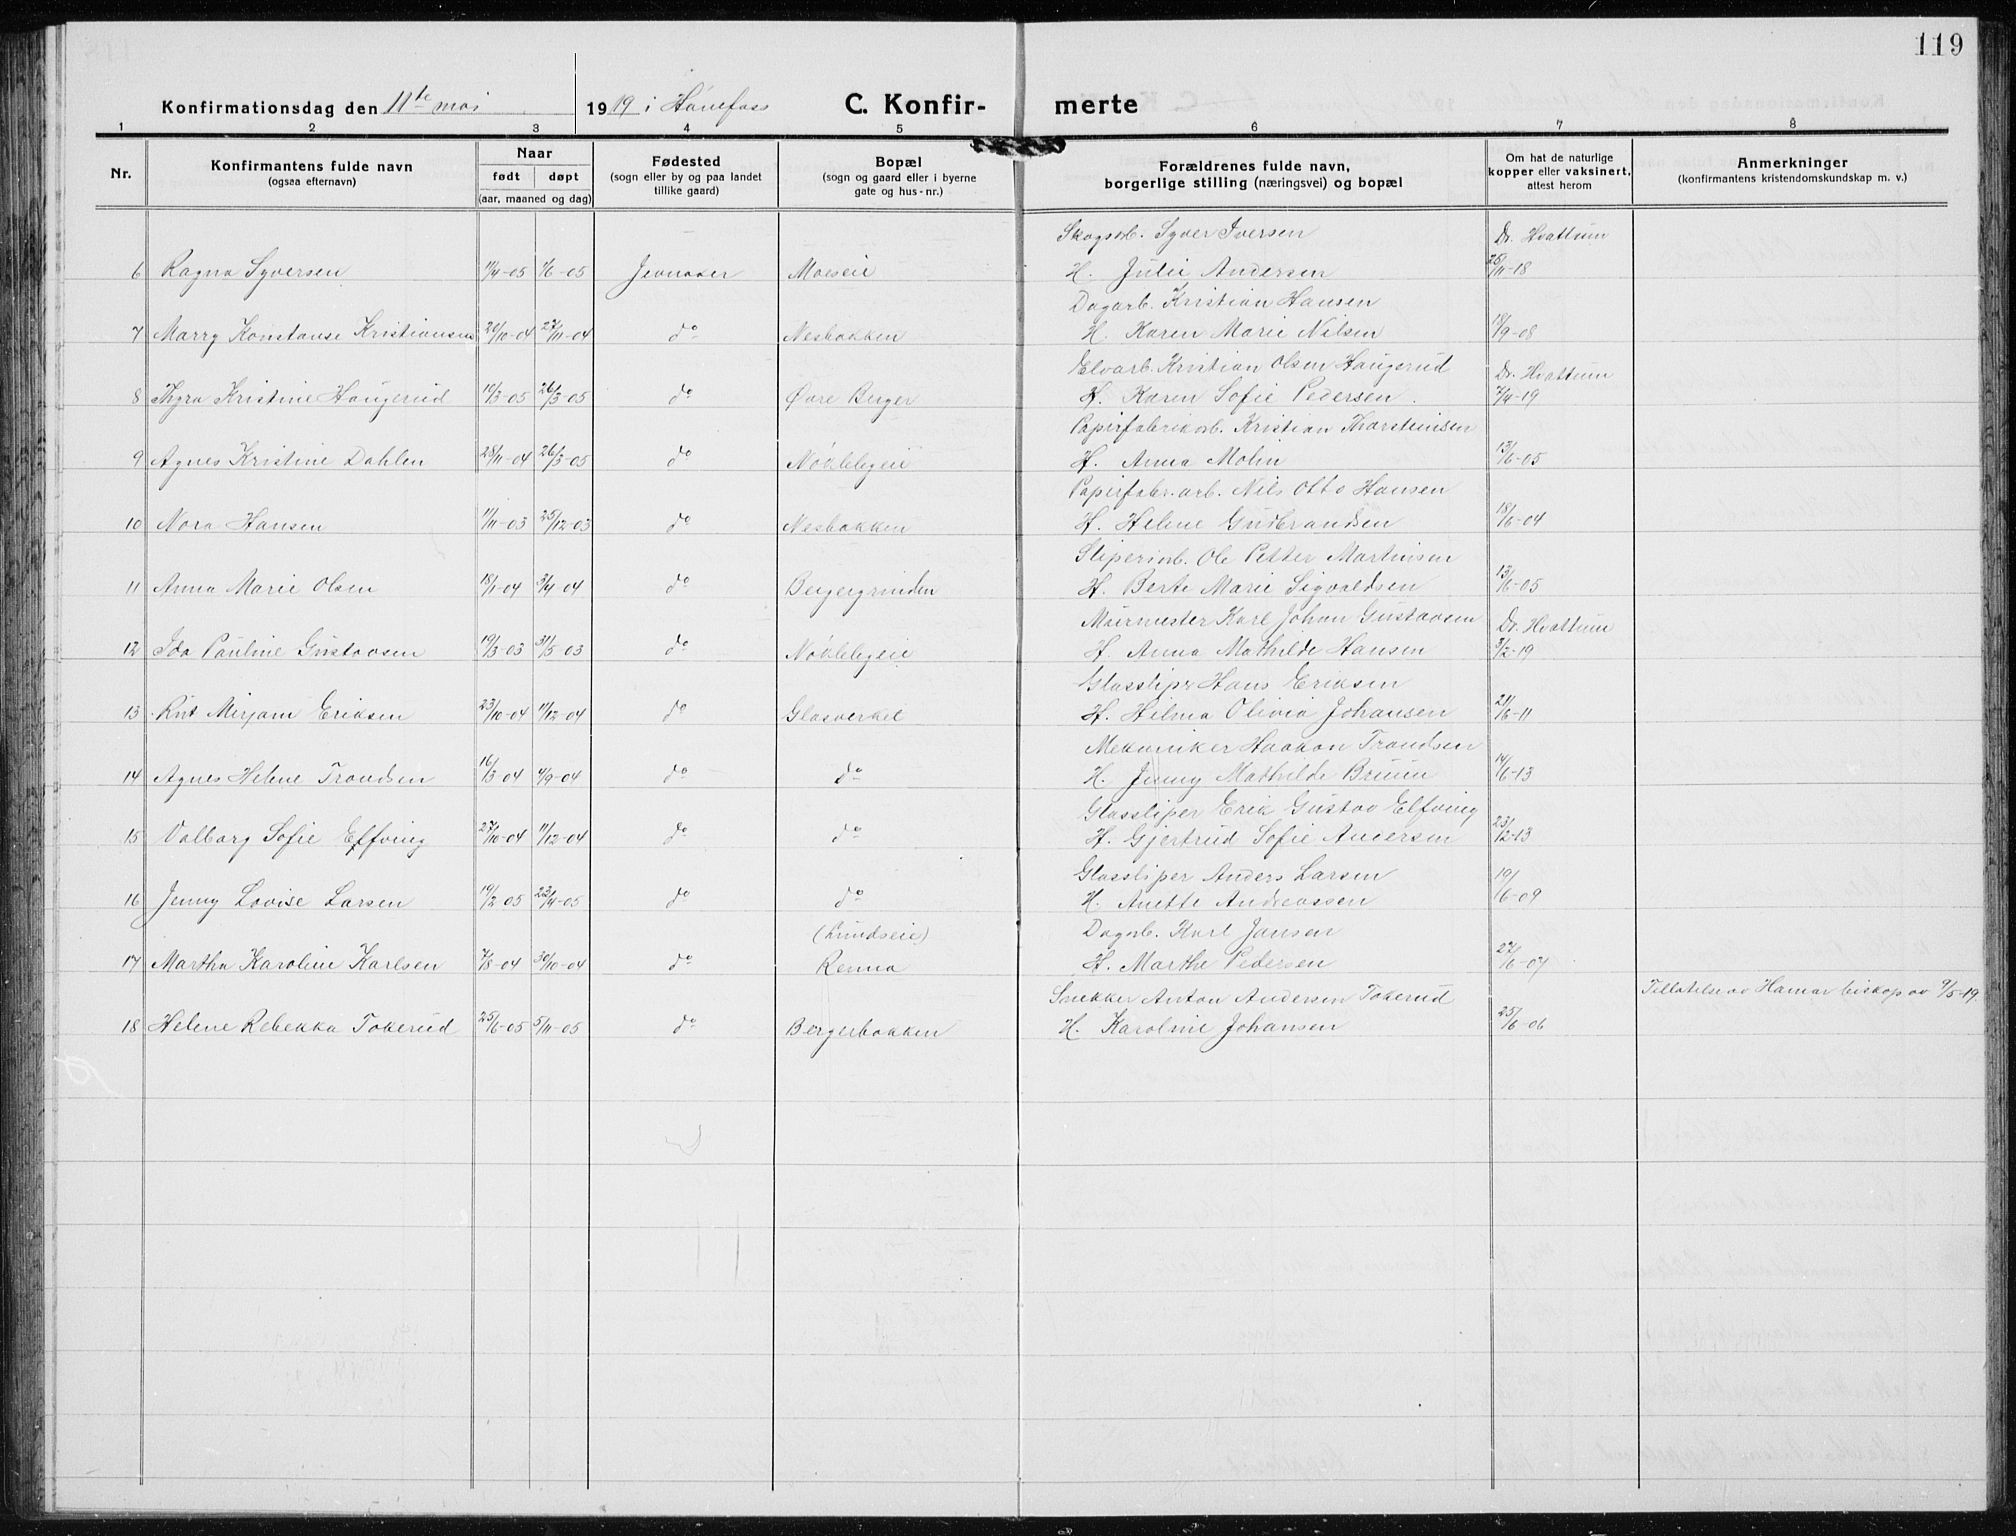 119
Konfirmationsdag den 11te mai 1919 i Hønefoss C. Konfir- merte
1 2 3 4 5 6 7 8
Nr. Konfirmantens fulde navn (ogsaa efternavn) Naar født døpt (aar, maaned og dag) Fødested (sogn eller by og paa landet tillike gaard) Bopæl (sogn og gaard eller i byerne gate og hus-nr.) Forældrenes fulde navn, borgerlige stilling (næringsvei) og bopæl Om hat de naturlige kopper eller vaksinert, attest herom Anmerkninger (konfirmantens kristendomskundskap m. v.)
Skogsarb. Syver Iversen Dr. Hvattum
6 Ragna Syversen 11/4-05 1/6-05 Jevnaker Moeseie H. Julie Andersen 25/11-18
Dagarb. Kristian Hansen
7 Marry Konstanse Kristiansen 20/10-04 27/11-04 do Nesbakken H. Karen Marie Nilsen 18/9-08
Elvarb. Kristian Olsen Haugerud Dr. Hvattum
8 Thyra Kristine Haugerud 10/3-05 26/3-05 do Øvre Berger H. Karen Sofie Pedersen. 7/4-19
Papirfabrikarb. Kristian Thorsteinsen
9 Agnes Kristine Dahlen 28/11-04 26/3-05 do Nøklebyeie H. Anna Molin 13/6-05
Papirfabr.arb. Nils Otto Hansen
10 Nora Hansen 11/11-03 25/12-03 do Nesbakken H. Helene Gudbrandsen 18/6-04
Sliperiarb. Ole Petter Martinsen
11 Anna Marie Olsen 18/1-04 3/4-04 do Bergergrinden H. Berte Marie Sigvaldsen 13/6-05
Murmester Karl Johan Gustavsen Dr. Hvattum
12 Ida Pauline Gustavsen 19/3-03 31/5 03 do Nøklebyeie H. Anna Mathilde Hansen 3/2-19
Glasslipr Hans Eriksen
13 Rut Mirjam Eriksen 23/10-04 11/12-04 do Glasverket H. Hilma Olivia Johansen 21/6-11
Mekaniker Haakon Trondsen
14 Agnes Helene Trondsen 16/3-04 4/9-04 do do H. Jenny Mathilde Bruun 14/6-13
Glassliper Erik Gustav Elfving
15 Valborg Sofie Elfving 27/10-04 11/12-04 do do H. Gjertrud Sofie Andersen 23/12-13
Glassliper Anders Larsen
16 Jenny Lovise Larsen 19/2-05 23/4-05 do do H. Anette Andreassen 19/6-09
(Lundseie) Dagarb. Karl Jansen
17 Martha Karoline Karlsen 7/8-04 30/10-04 do Renna H. Marthe Pedersen 27/6-07
Snekker Anton Andersen Tokerud Tillatelse av Hamar biskop av 9/5-19.
18 Helene Rebekka Tokerud 25/6-05 5/11-05 do Bergerbakken H. Karoline Johansen 25/6-06